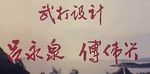 武打设计
吕永泉 傅伟兴